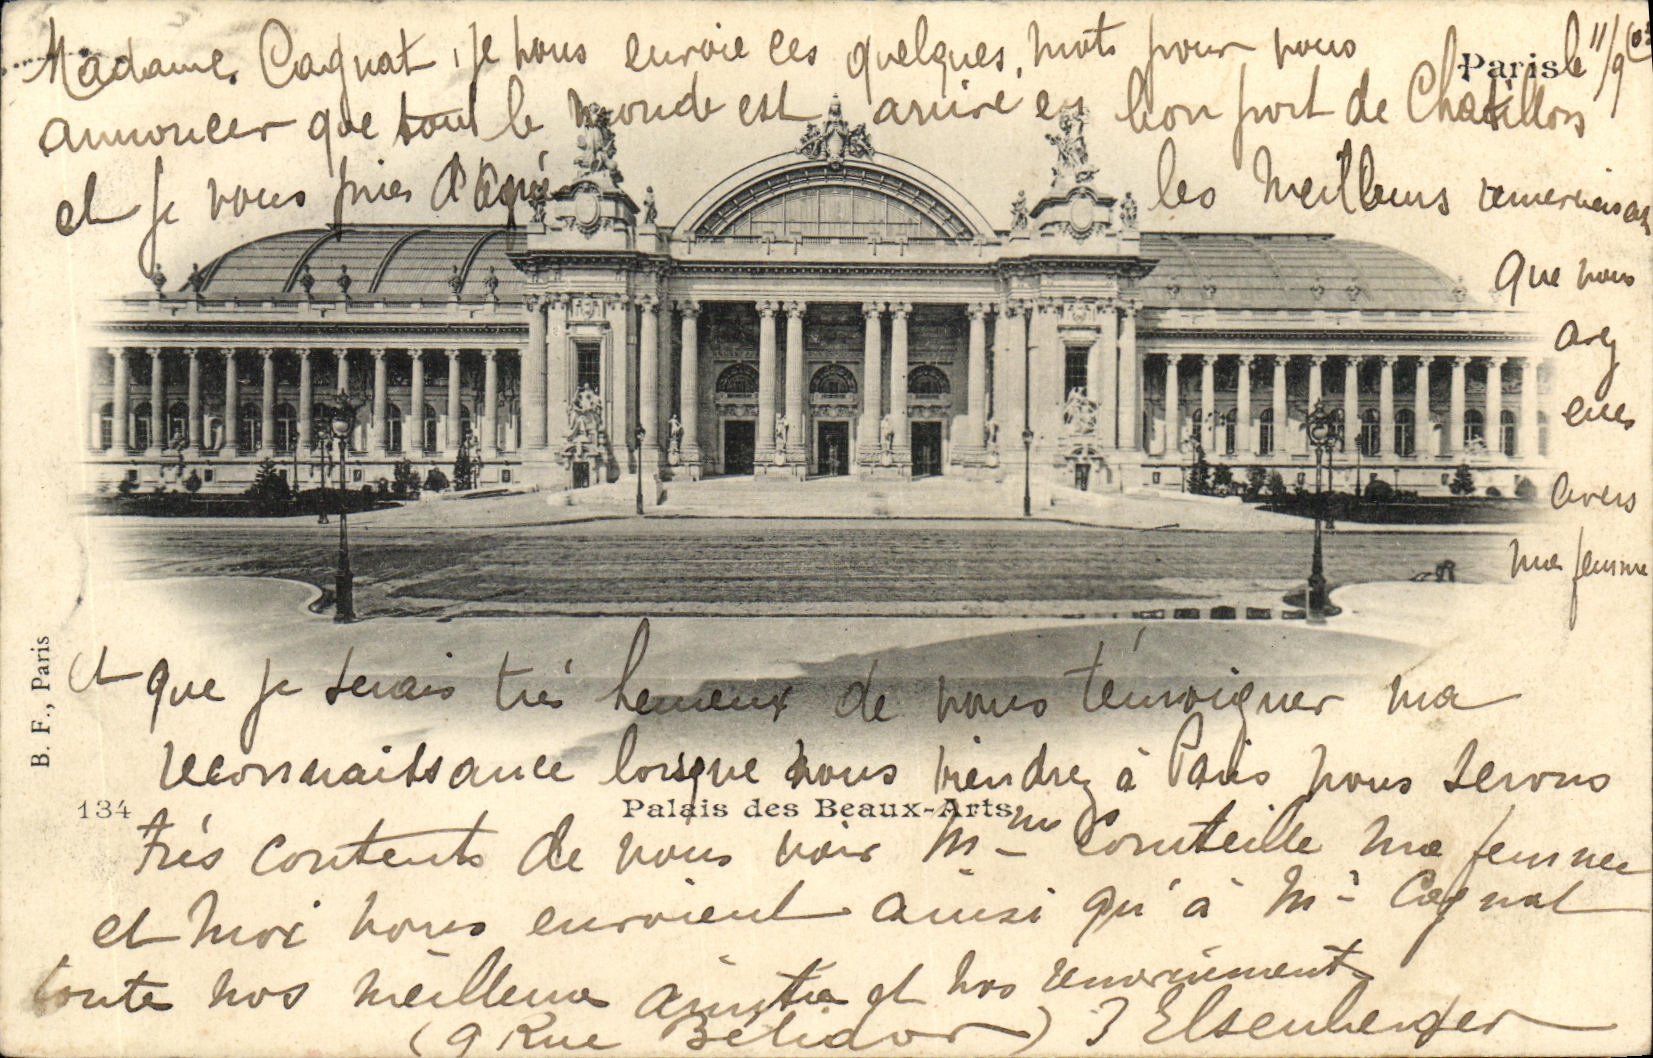 Paris le 11/9 03
Madame Cagnat, je vous envoie ces quelques mots pour vous
annoncer que tout le monde est arrivé en bon port de Chatillon
et je vous pries d'agréé les meilleurs
que vous
avez
eues
avers
ma femme
et que je serais très heureux de vous témoigner ma
reconnaissance lorsque vous viendrez à Paris nous serons
134 Palais des Beaux-Arts
très contents de vous voir Mme Cornteille ma femme
et moi vous envoient ainsi qu'à Mr Cagnat
toute nos meilleure et nos
(9 Rue Bélidor) J Elsenberger
B. F., Paris